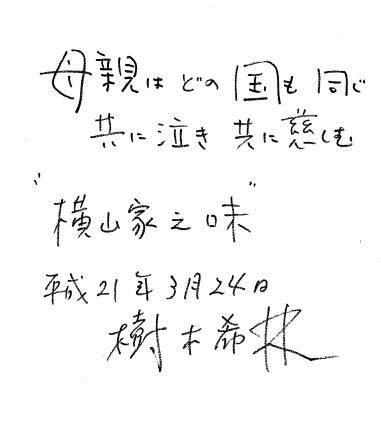 母親はどの国も同じ
共に泣き共に慈しむ
"横山家之味"
平成21年3月24日
樹木希林